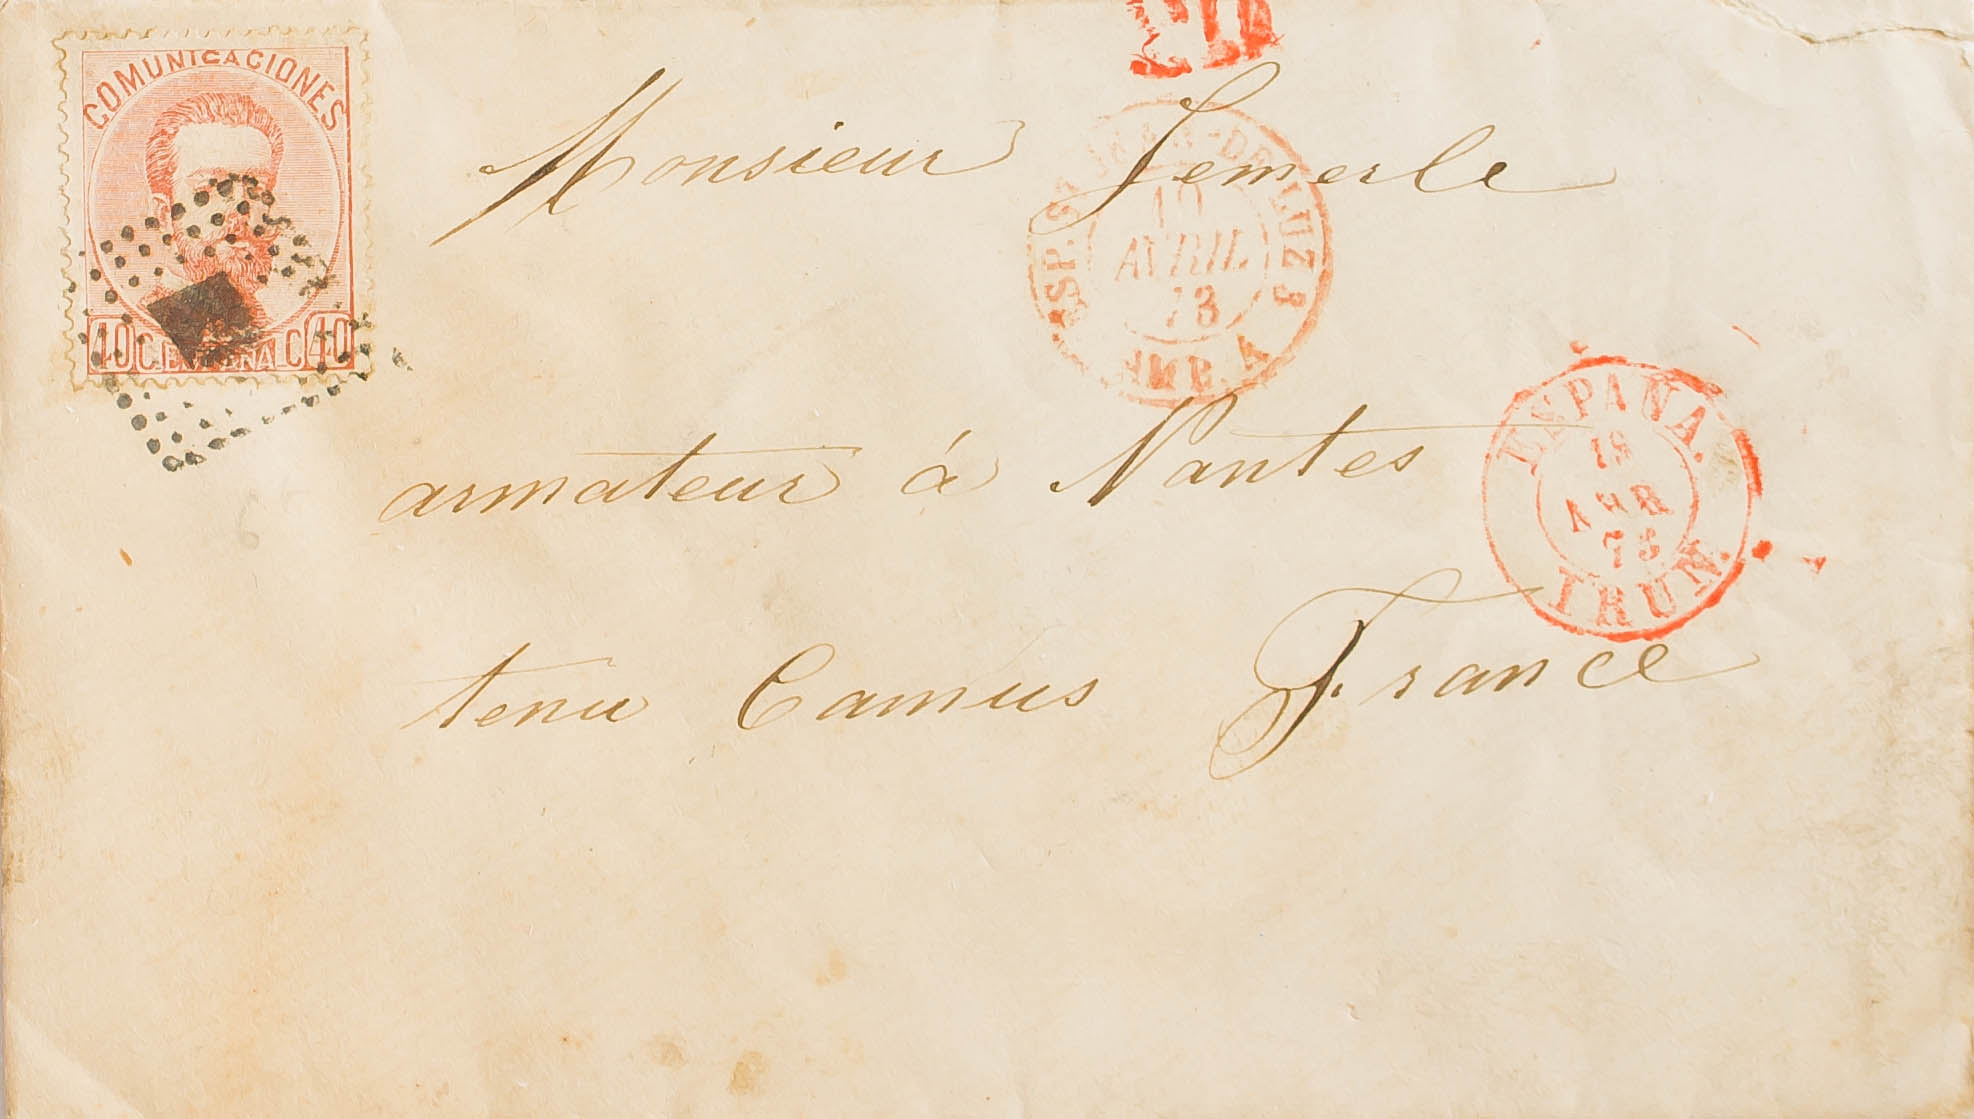 PD
COMUNICACIONES
40 C. ESPAÑA C 40
ESP. ST JEAN-DE-LUZ 3
AVRIL
73
AMB. A
ESPAÑA.
ABR
73
IRUN.
Monsieur Lemerle
armateur à Nantes
tenu Camus France